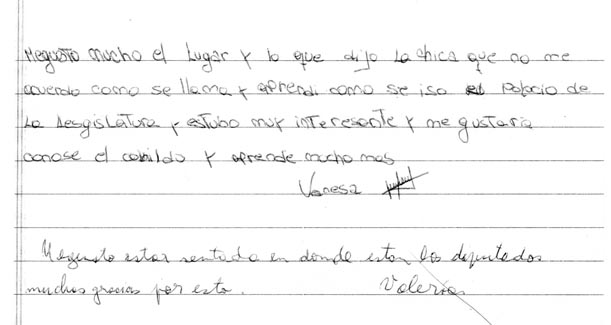 Megusto mucho el lugar y lo que dijo la chica que no me
acuerdo como se llama y aprendi como se iso el Palacio de
La Lesgislatura y estubo muy interesante y me gustaria
conose el cabildo y aprende mucho mas
Vanesa
Megusto estar sentada en donde estan los diputados
muchas gracias por esto. Valeria